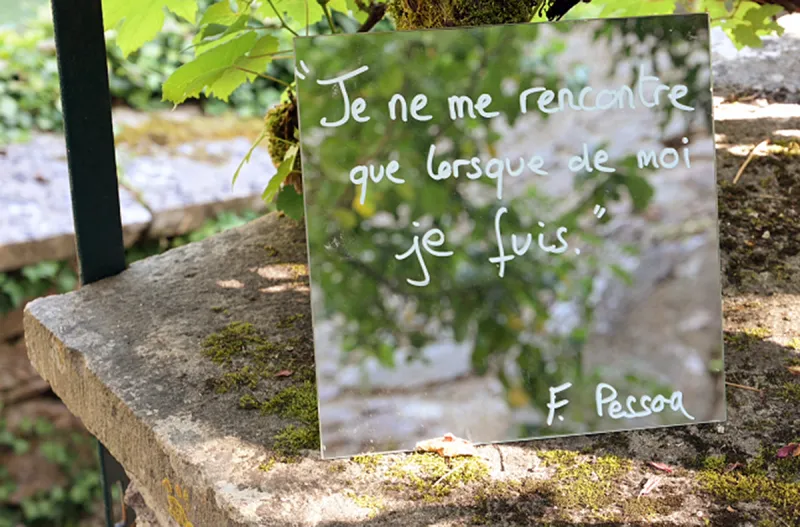 "Je ne me rencontre
que lorsque de moi
je fuis."
F. Pessoa